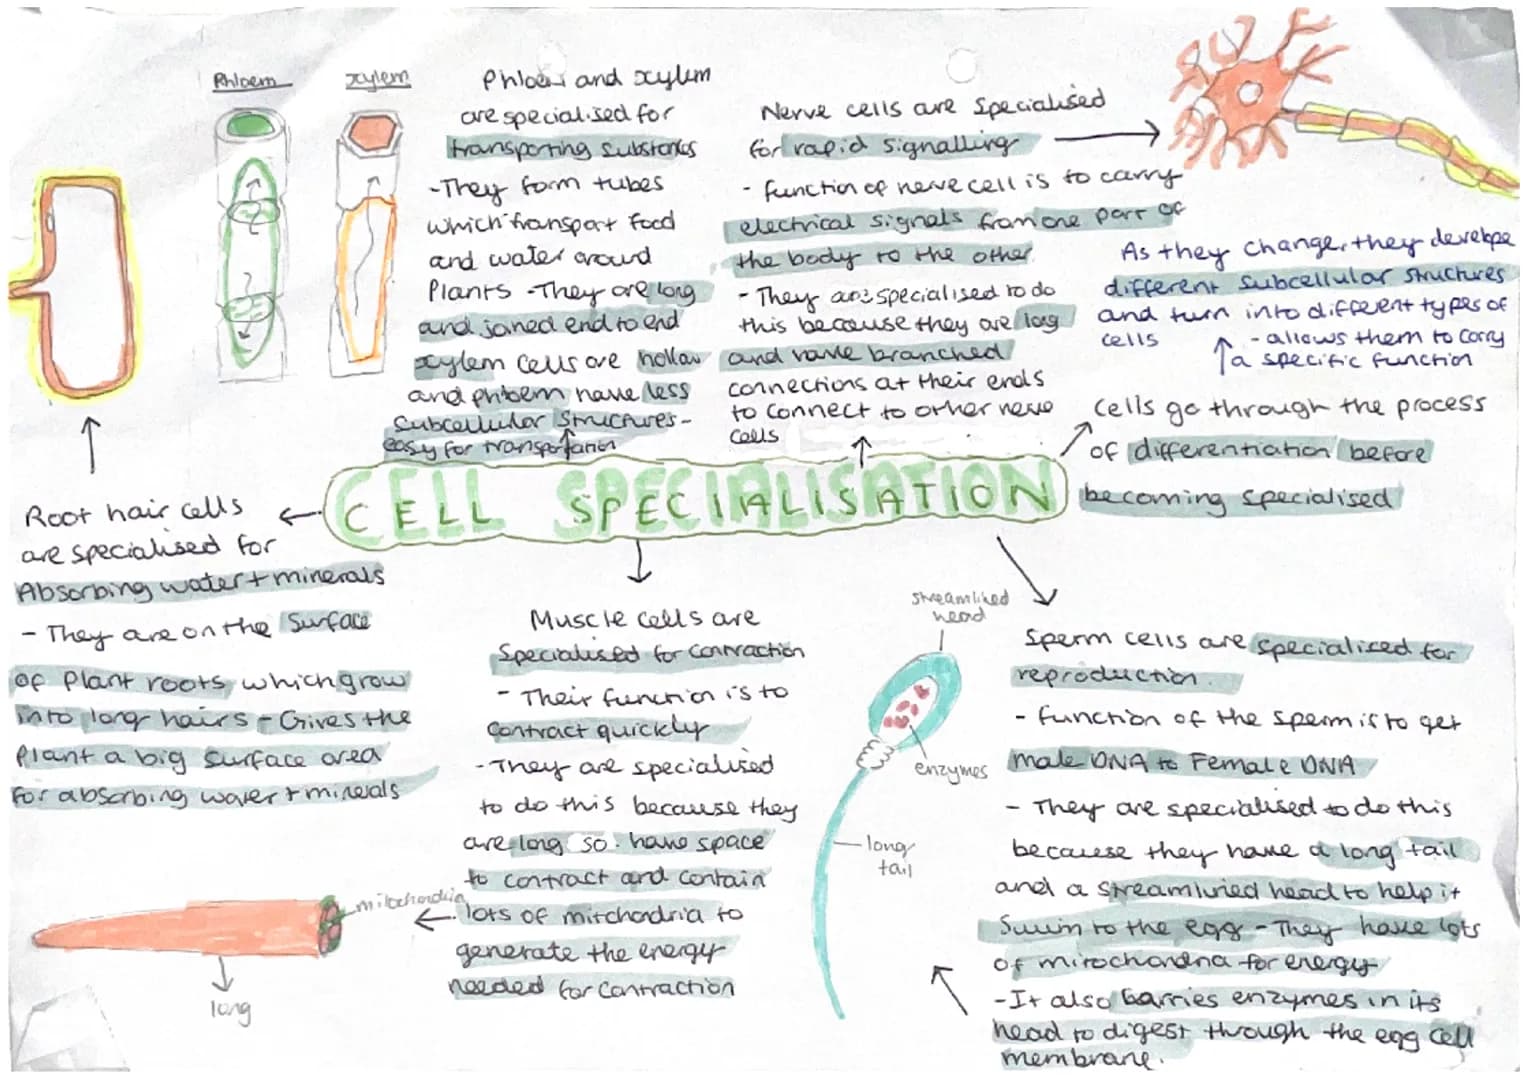 Phloem
xylem
Phloem and xylem
are specialised for
transporting substances
-They form tubes
which transport food
and water around
Plants -They are long
and joined end to end
xylem cells are hollow
and phloem have less
subcellular structures-
easy for transportation
Nerve cells are specialised
for rapid signalling
- function of nerve cell is to carry
electrical signals from one part of
the body to the other
- They are specialised to do
this because they are long
and have branched
connections at their ends
to connect to other nerve
cells
As they change, they develope
different subcellular structures
and turn into different types of
cells
- allows them to carry
a specific function
Cells go through the process
of differentiation before
becoming specialised
CELL SPECIALISATION
Root hair cells
are specialised for
Absorbing water + minerals
- They are on the surface
of plant roots, which grow
into long hairs - Gives the
plant a big surface area
for absorbing water + minerals
Muscle cells are
specialised for contraction
- Their function is to
contract quickly
-They are specialised
to do this because they
are long so have space
to contract and contain
lots of mitchondria to
generate the energy
needed for contraction
mitochondria
long
streamlined
head
enzymes
long
tail
Sperm cells are specialised for
reproduction.
- function of the sperm is to get
male DNA to Female DNA
- They are specialised to do this
because they have a long tail
and a streamlined head to help it
swim to the egg - They have lots
of mitochondria for energy
-It also carries enzymes in its
head to digest through the egg cell
membrane.